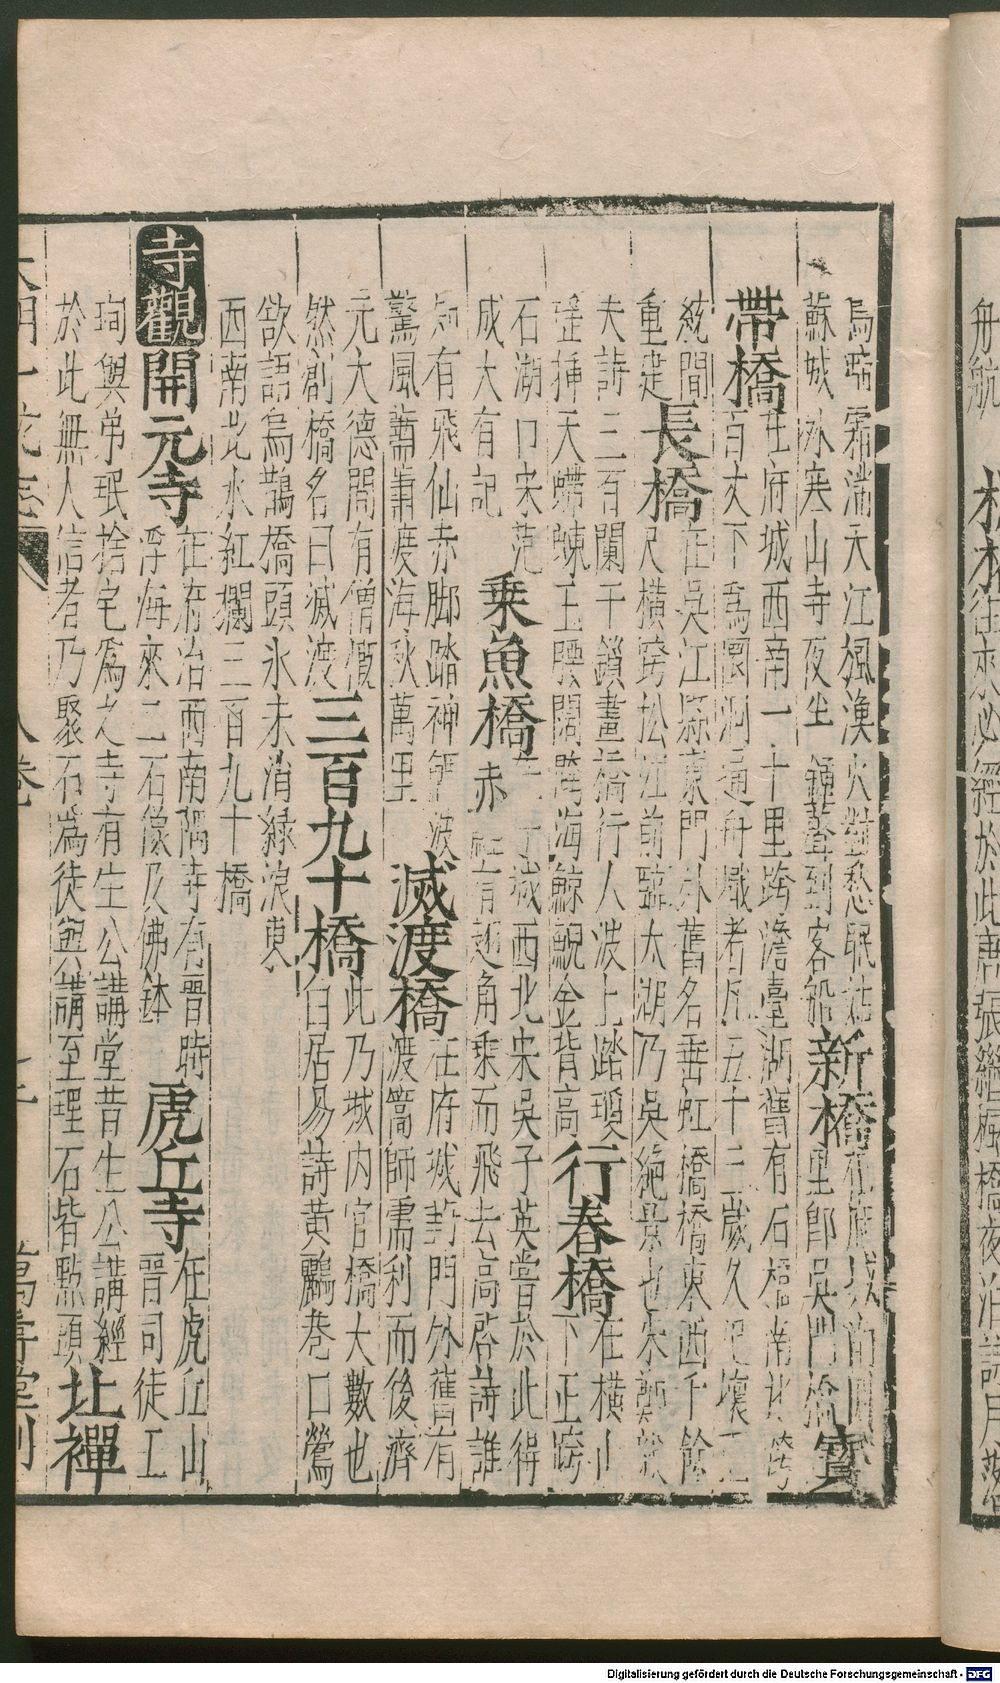 烏啼霜滿天江楓漁火對愁眠姑
蘇城外寒山寺夜半鍾聲到客船
新橋
寶
帶橋
在府城西南一十里跨澹臺湖舊有石橋南北跨
百丈下爲圜洞通舟檝者凡五十三歲久圮壞正
統間
重建
長橋
在吳江縣東門外舊名垂虹橋橋東西千餘
尺橫跨松江前臨太湖乃吳絶景也宋鄭獬
夫詩三百闌干鎖畫橋行人波上踏瓊
瑤揷天螮蝀玉腰闊跨海鯨鯢金背高
行春橋
在橫山
下正跨
石湖口宋范
成大有記
乗魚橋
在 城西北宋吳子英嘗於此得
赤 生有翅角乗而飛去高啓詩誰
知有飛仙赤脚踏神 波
驚風蕭蕭渡海秋萬里
滅渡橋
在府城葑門外舊有
渡篙師需利而後濟
元大德間有僧慨
然創橋名曰滅渡
三百九十橋
此乃城内官橋大數也
白居易詩黃鸝巷口鶯
欲語烏鵲橋頭氷未消緑浪東
西南北水紅欄三百九十橋
寺觀
開元寺
在府治西南隅寺有晋時
浮海來二石像及佛鉢
虎丘寺
在虎丘山
晋司徒王
珣與弟珉捨宅爲之寺有生公講堂昔生公講經
於此無人信者乃聚石爲徒與講至理石皆點頭
北禪
大明一統志
八卷
萬壽堂刊
往來必經於此唐張繼楓橋夜泊詩月落
Digitalisierung gefördert durch die Deutsche Forschungsgemeinschaft - DFG